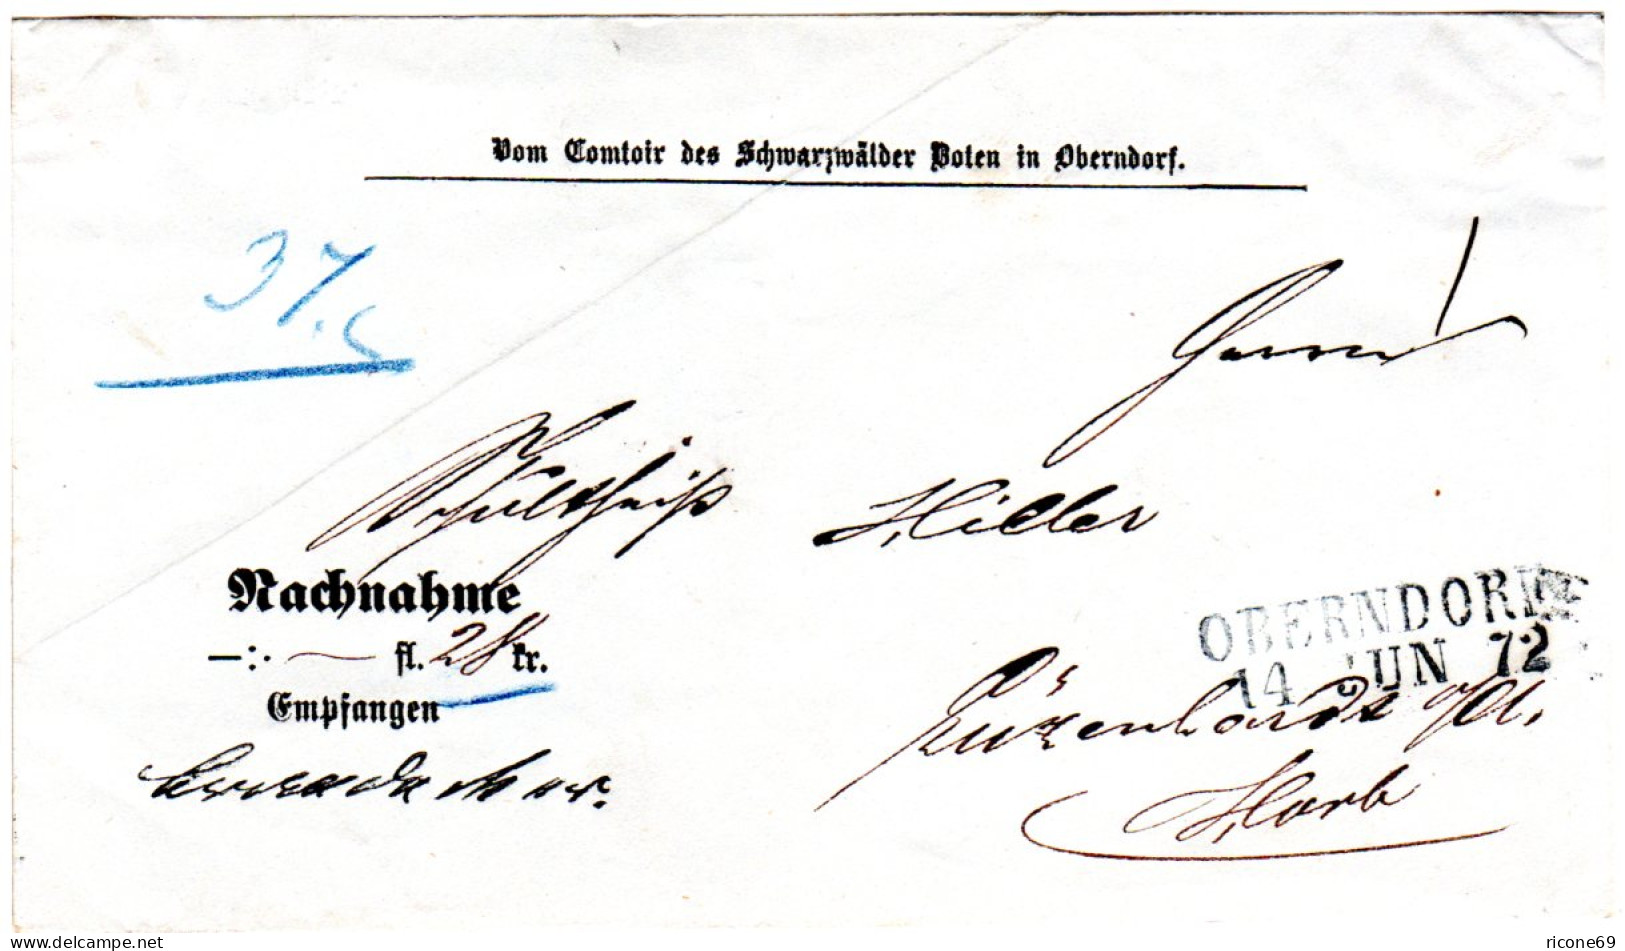 Vom Comtoir des Schwarzwälder Boten in Oberndorf.
37.
Herrn
Schultheiß Hiller
Nachnahme
—:· — fl. 28 kr.
Empfangen
OBERNDORF
14 JUN 72
Lützenhardt O/A.
Horb
www.delcampe.net
ricone69